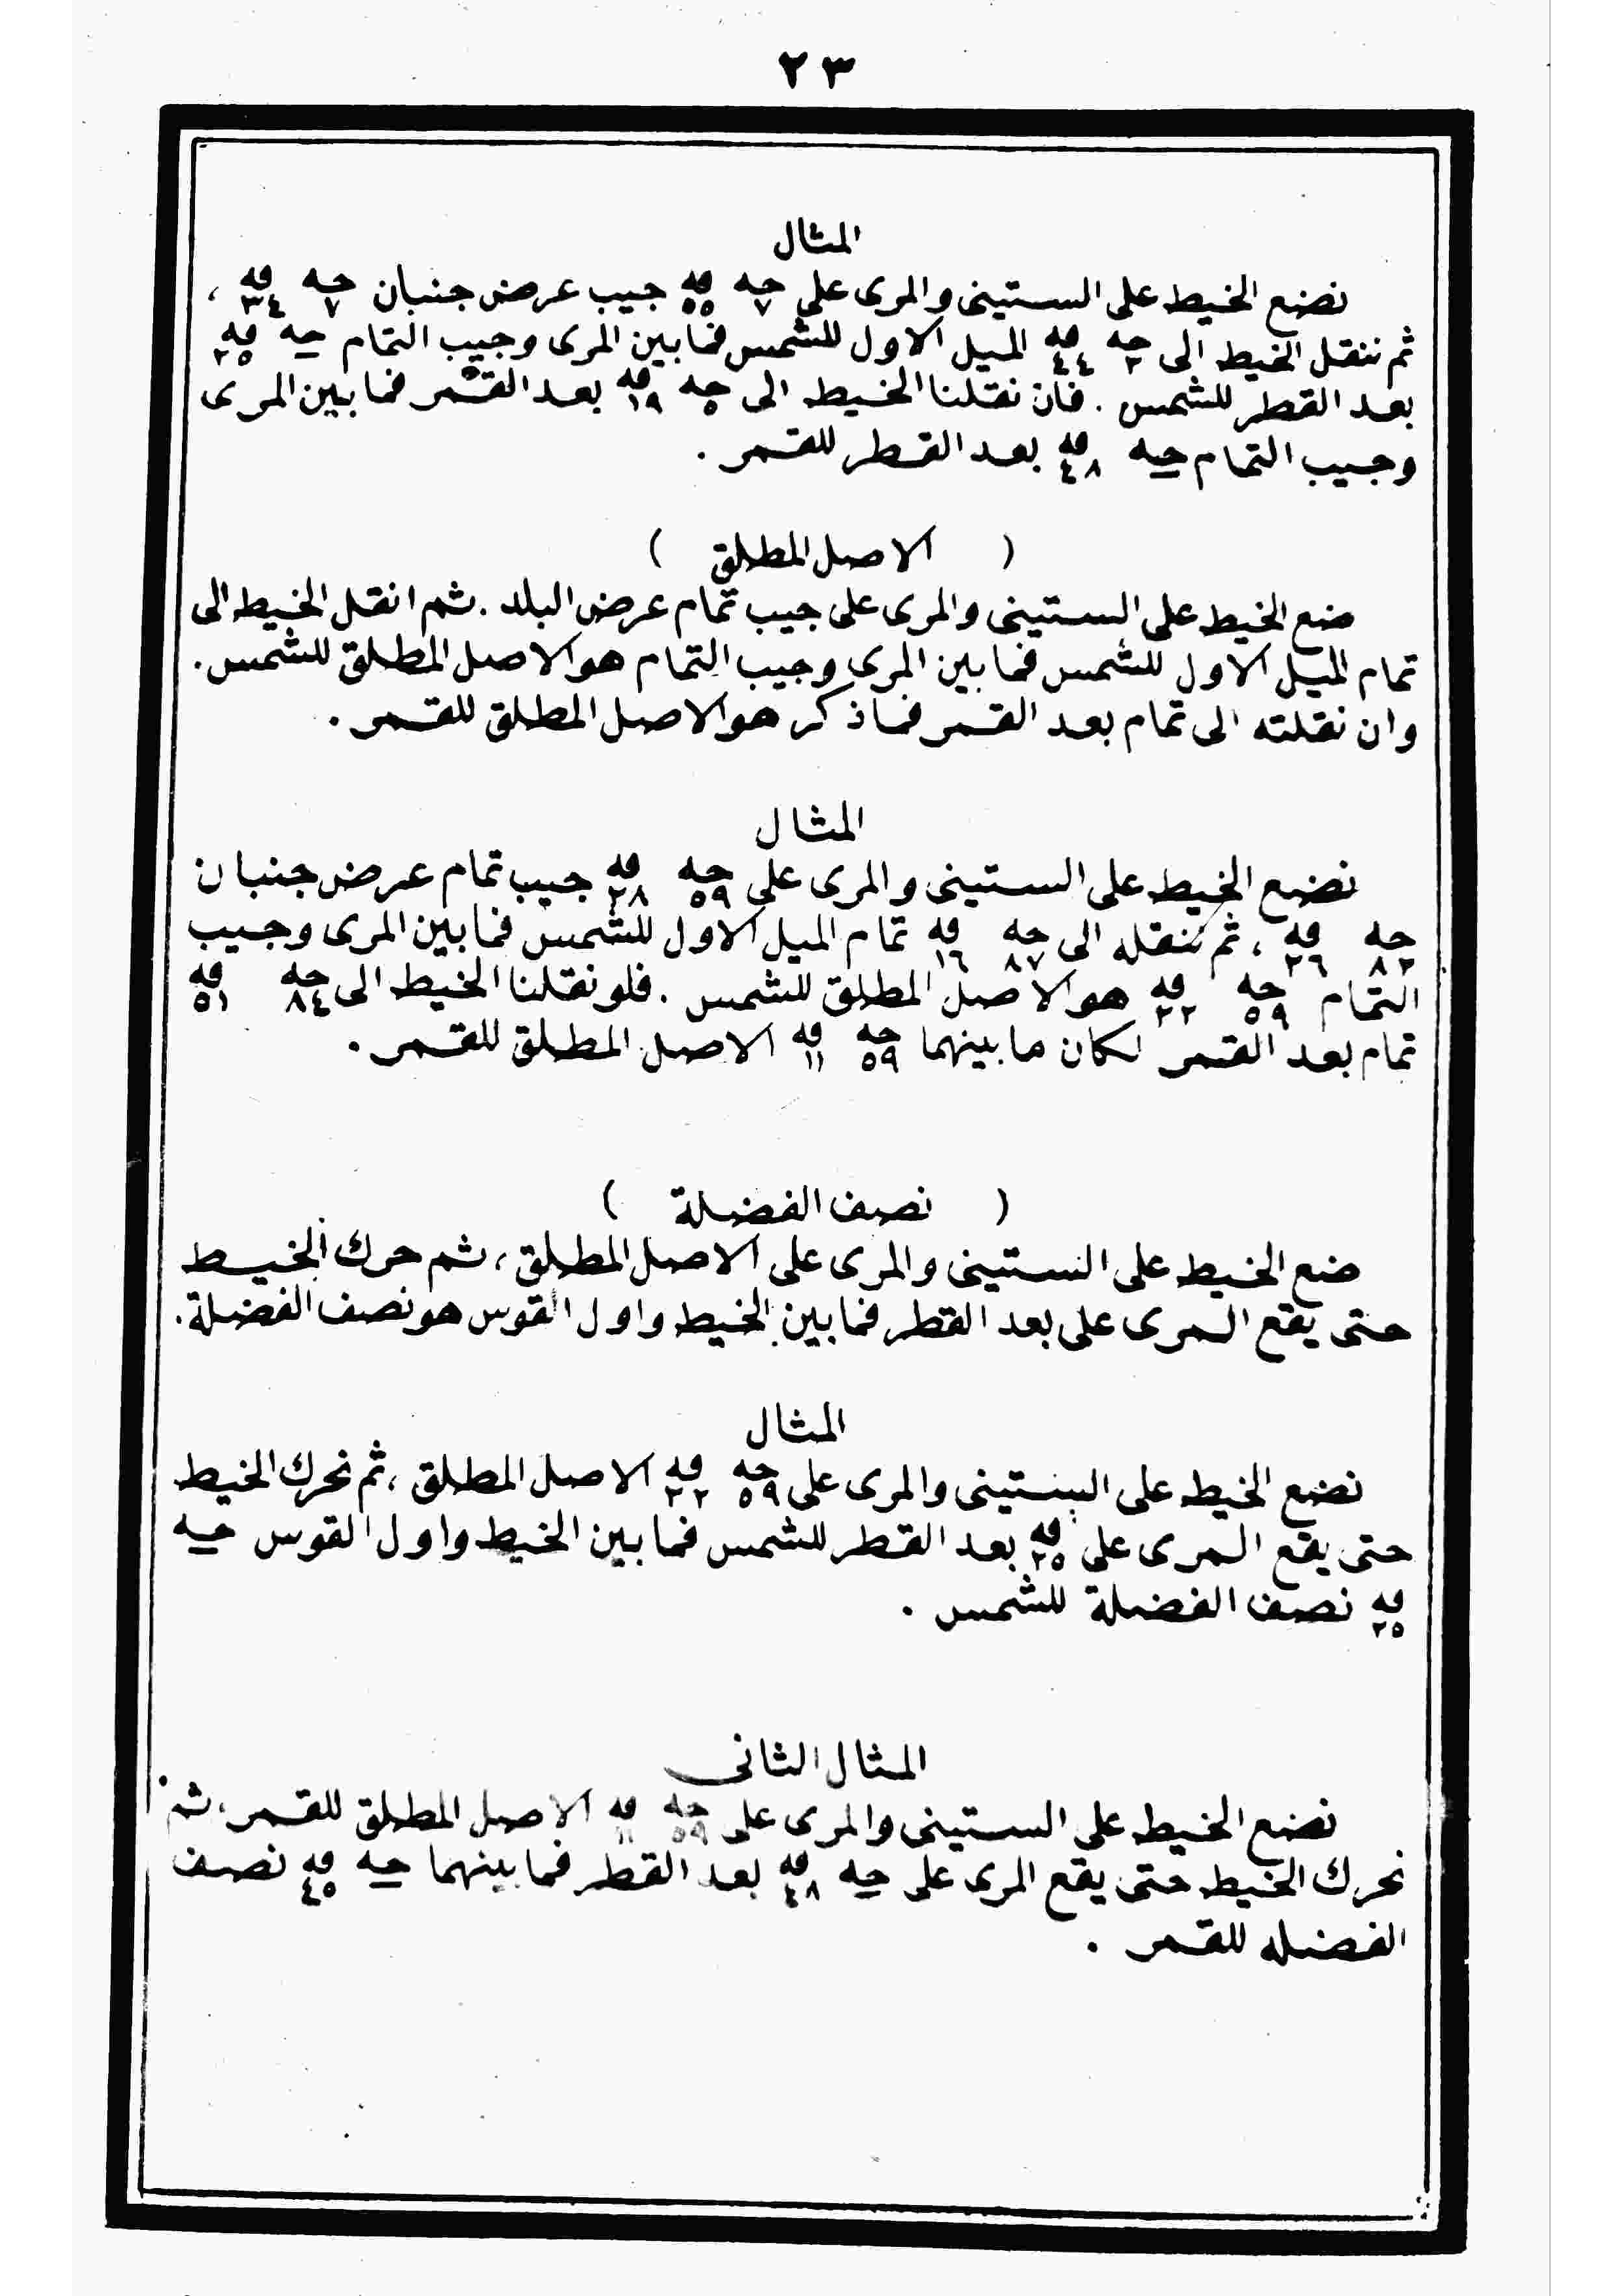 ٢٣
المثال
نضع الخيط على الستينى والمرى على جه ٧ قه ٥٥ جيب عرض جنبان جه ٧ قه ٣٤ ،
ثم ننقل الخيط الى جه ٢ قه ٤٤ الميل الاول للشمس فما بين المرى وجيب التمام جه قه ٢٥
بعد القطر للشمس . فان نقلنا الخيط الى جه ٥ قه ١٩ بعد القمر فما بين المرى
وجيب التمام جه قه ٤٨ بعد القطر للقمر .
( الاصل المطلق )
ضع الخيط على الستينى والمرى على جيب تمام عرض البلد . ثم انقل الخيط الى
تمام الميل الاول للشمس فما بين المرى وجيب التمام هو الاصل المطلق للشمس .
وان نقلته الى تمام بعد القمر فما ذكر هو الاصل المطلق للقمر .
المثال
نضع الخيط على الستينى والمرى على جه ٥٩ قه ٢٨ جيب تمام عرض جنبان
جه ٨٢ قه ٢٦ ، ثم ننقله الى جه ٨٧ قه ١٦ تمام الميل الاول للشمس فما بين المرى وجيب
التمام جه ٥٩ قه ٢٢ هو الاصل المطلق للشمس . فلو نقلنا الخيط الى جه ٨٤ قه ٥١
تمام بعد القمر لكان ما بينهما جه ٥٩ قه ١١ الاصل المطلق للقمر .
( نصف الفضلة )
ضع الخيط على الستينى والمرى على الاصل المطلق ، ثم حرك الخيط
حتى يقع المرى على بعد القطر فما بين الخيط واول القوس هو نصف الفضلة .
المثال
نضع الخيط على الستينى والمرى على جه ٥٩ قه ٢٢ الاصل المطلق ، ثم نحرك الخيط
حتى يقع المرى على قه ٢٥ بعد القطر للشمس فما بين الخيط واول القوس جه
قه ٢٥ نصف الفضلة للشمس .
المثال الثانى
نضع الخيط على الستينى والمرى على جه ٥٩ قه ١١ الاصل المطلق للقمر ، ثم
نحرك الخيط حتى يقع المرى على جه قه ٤٨ بعد القطر فما بينهما جه قه ٤٥ نصف
الفضله للقمر .